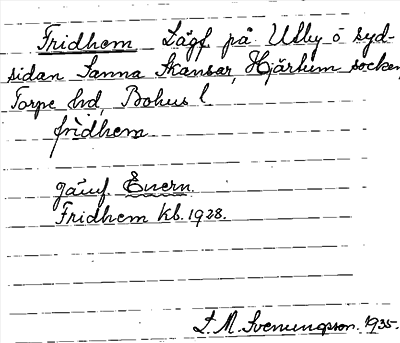 Fridhem Lägf på Ulby ö syd-
sidan Sanna Skansar, Hjärtum socken,
Torpe hd, Bohus l
fridhem
jämf. Enern.
Fridhem Kb. 1928.
S. M. Svenungsson. 1935.